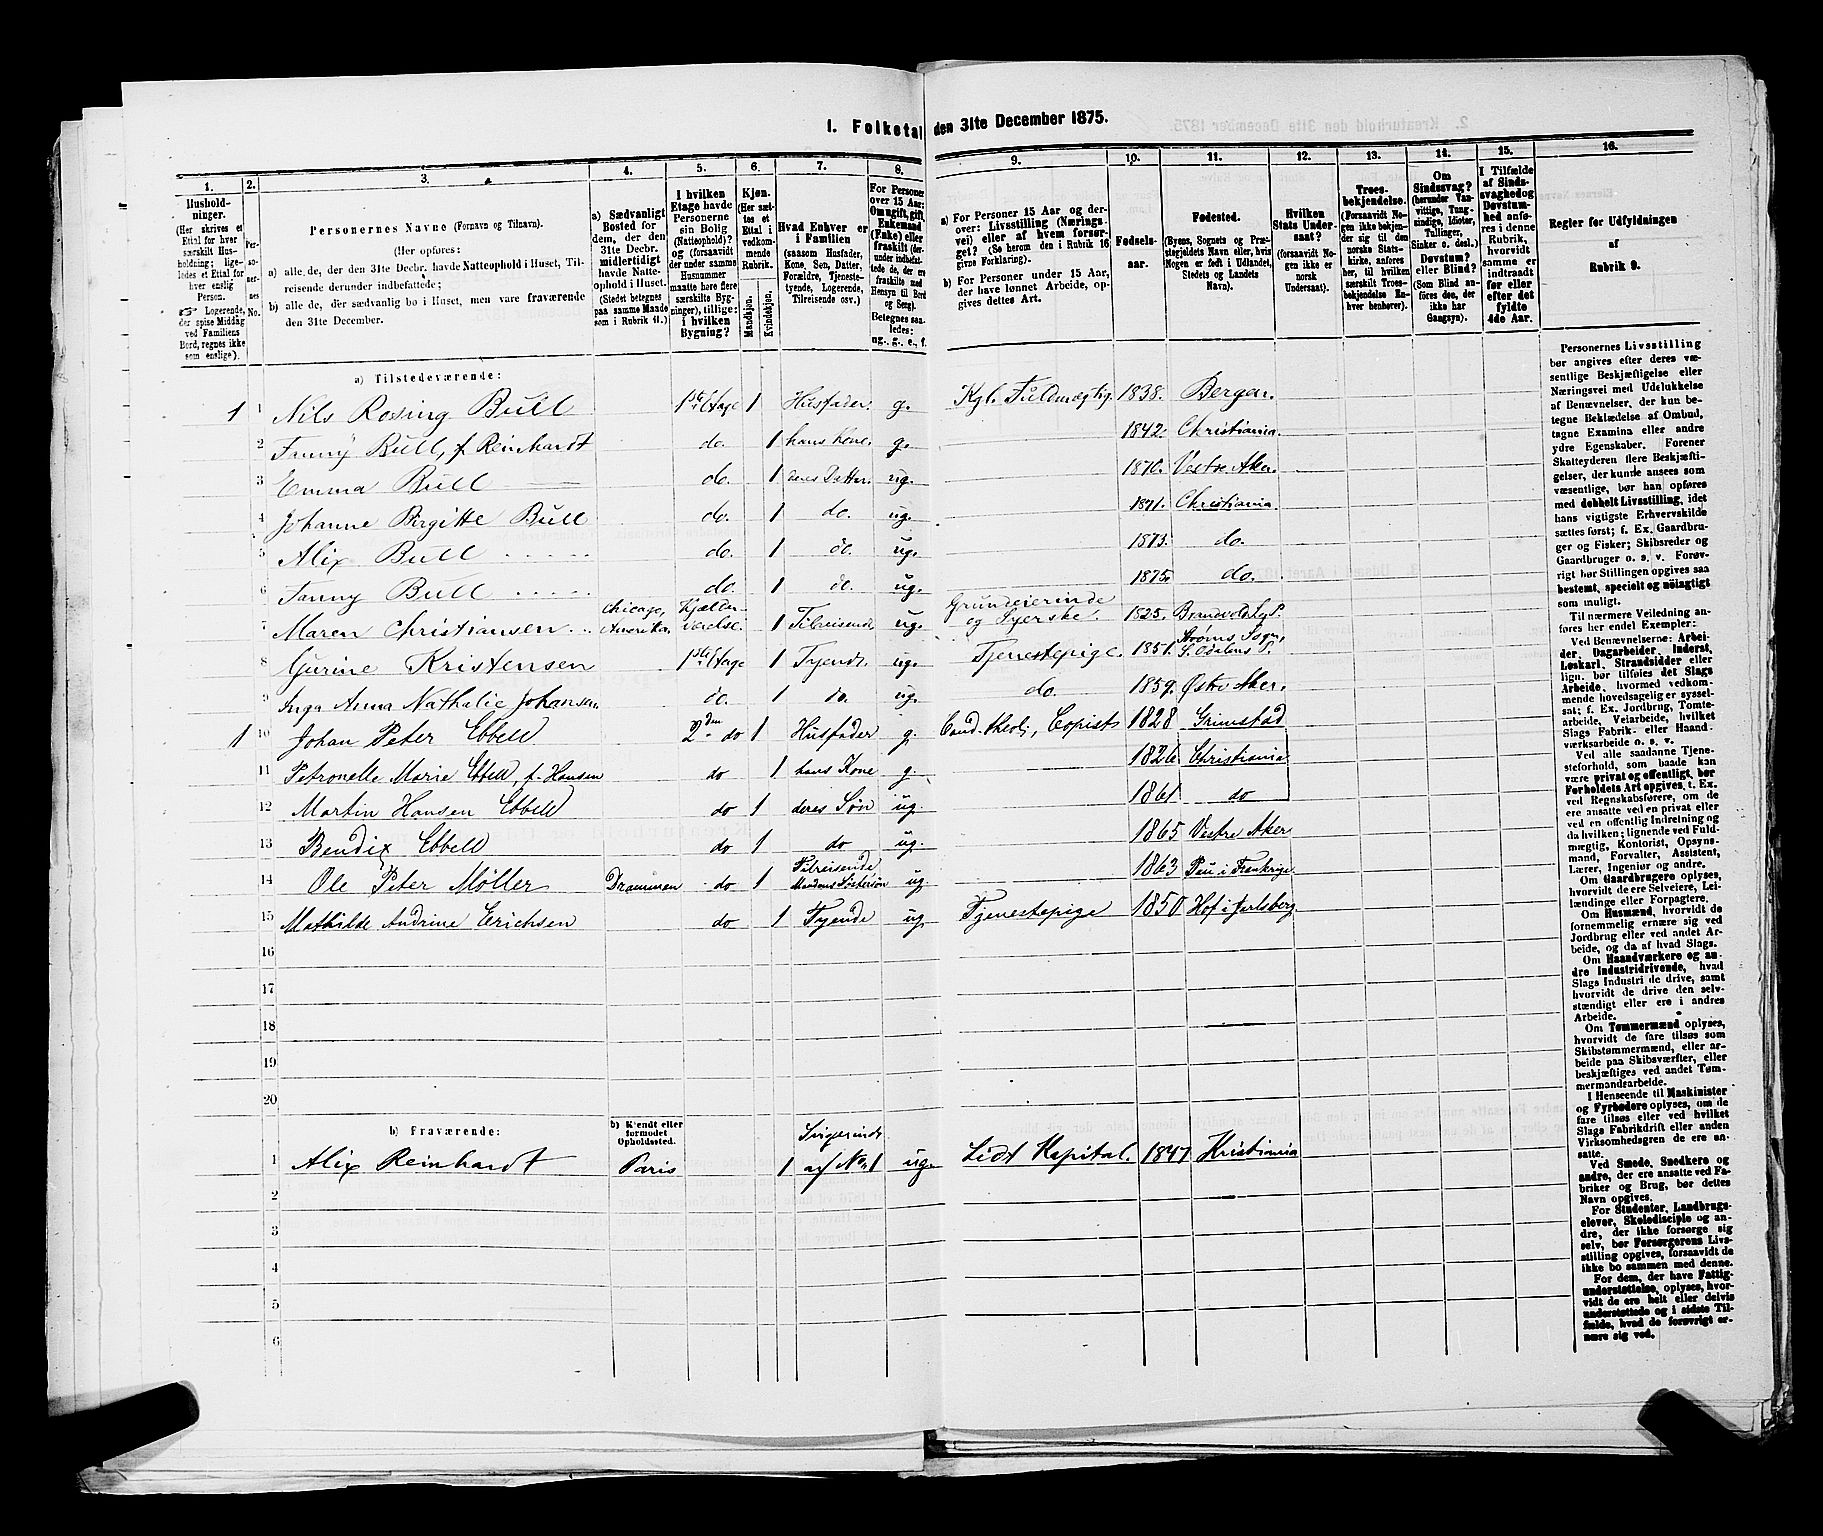 1. Folketal den 31te December 1875.
1. 2. 3. 4. 5. 6. 7. 8. 9. 10. 11. 12. 13. 14. 15. 16.
Husholdninger. (Her skrives et Ettal for hver særskilt Husholdning; ligeledes et Ettal for hver enslig Person.
Logerende, der spise Middag ved Familiens Bord, regnes ikke som enslige).
Personernes No.
Personernes Navne (Fornavn og Tilnavn).
(Her opføres:
a) alle de, der den 31te Decbr. havde Natteophold i Huset, Tilreisende derunder indbefattede;
b) alle de, der sædvanlig bo i Huset, men vare fraværende den 31te December.
a) Sædvanligt Bosted for dem, der den 31te Decbr. midlertidigt havde Natteophold i Huset. (Stedet betegnes paa samme Maade som i Rubrik 11.)
I hvilken Etage havde Personerne sin Bolig (Natteophold)? og (forsaavidt der under samme Husnummer maatte høre flere særskilte Bygninger), tillige: i hvilken Bygning?
Kjøn. (Her sættes et Ettal i vedkommende Rubrik.
Mandkjøn. Kvindekjøn.
Hvad Enhver er i Familien (saasom Husfader, Kone, Søn, Datter, Forældre, Tjenestetyende, Logerende, Tilreisende osv.)
For Personer over 15 Aar: Om ugift, gift, Enkemand (Enke) eller fraskilt (derunder indbefattede de, der ere fraskilte med Hensyn til Bord og Seng). Betegnes saaledes: ug., g., e., f.
a) For Personer 15 Aar og derover: Livsstilling (Næringsvei) eller af hvem forsørget? (Se herom den i Rubrik 16 givne Forklaring).
b) For Personer under 15 Aar, der have lønnet Arbeide, opgives dettes Art.
Fødselsaar.
Fødested. (Byens, Sognets og Præstegjeldets Navn eller, hvis Nogen er født i Udlandet, Stedets og Landets Navn).
Hvilken Stats Undersaat? (forsaavidt Nogen ikke er norsk Undersaat).
Troesbekjendelse. (Forsaavidt Nogen ikke bekjender sig til den norske Statskirke, anføres her, til hvilken særskilt Troesbekjendelse Enhver henhører).
Om Sindssvag? (herunder Vanvittige, Tungsindige, Idioter, Tullinger, Sinker o. desl.) Døvstum? eller Blind? (Som Blind anføres den, der ikke har Gangsyn).
I Tilfælde af Sindssvaghed og Døvstumhed anføres i denne Rubrik, hvorvidt samme er indtraadt før eller efter det fyldte 4de Aar.
Regler for Udfyldningen af Rubrik 9.
a) Tilstedeværende:
1 1 Nils Rosing Bull 1ste Etage 1 Husfader. g. Kgl. Fuldmægtig. 1838. Bergen.
2 Fanny Bull, f. Reinhardt do. 1 hans Kone. g. 1842. Christiania.
3 Emma Bull do. 1 deres Datter. ug. 1870. Vestre Aker.
4 Johanne Birgitte Bull do. 1 do. ug. 1871. Christiania.
5 Alix Bull do. 1 do. ug. 1873. do.
6 Fanny Bull do. 1 do. ug. 1875. do.
7 Maren Christiansen Chicago, Amerika. Kjælderværelse. 1 Tilreisende ug. Grundeierinde og Syerske. 1825.
8 Gurine Kristensen 1ste Etage 1 Tyende. ug. Tjenestepige. 1851. Strøms Sogn, S. Odalens P.
9 Inga Anna Nathalie Johansen do. 1 do. ug. do. 1859. Østre Aker.
1 10 Johan Peter Ebbell 2den do 1 Husfader g. Cand. theol., Copist 1828 Grimstad
11 Petronelle Marie Ebbell, f. Hansen do 1 hans Kone g. 1826 Christiania
12 Martin Hansen Ebbell do 1 deres Søn ug. 1861 do
13 Bendix Ebbell do 1 do ug. 1865 Vestre Aker
14 Ole Peter Møller Drammen do 1 Tilreisende Mandens Søstersøn ug 1863 Pau i Frankrige
15 Mathilde Andrine Erichsen do 1 Tyende ug. Tjenestepige 1850 Hof i Jarlsberg
16
17
18
19
20
b) Fraværende: b) Kjendt eller formodet Opholdssted.
1 Alix Reinhardt Paris 1 af No. 1 ug. Lidt Kapital. 1847 Kristiania
2
3
4
5
6
Personernes Livsstilling bør angives efter deres væsentlige Beskjæftigelse eller Næringsvei med Udelukkelse af Benævnelser, der kun betegne Beklædelse af Ombud, tagne Examina eller andre ydre Egenskaber. Forener Skatteyderen flere Beskjæftigelser, der kunne ansees som væsentlige, bør han opføres med dobbelt Livsstilling, idet hans vigtigste Erhvervskilde sættes først; f. Ex. Gaardbruger og Fisker; Skibsreder og Gaardbruger o. s. v. Forøvrigt bør Stillingen opgives saa bestemt, specielt og nöiagtigt som muligt.
Til nærmere Veiledning anføres her endel Exempler:
Ved Benævnelserne: Arbeider, Dagarbeider, Inderst, Løskarl, Strandsidder eller lign. bør tilføies det Slags Arbeide, hvormed vedkommende hovedsagelig er sysselsat; f. Ex. Jordbrug, Tomtearbeide, Veiarbeide, hvilket Slags Fabrik- eller Haandværksarbeide o. s. v.
Ved alle saadanne Tjenesteforhold, som baade kan være privat og offentligt, bør Forholdets Art opgives, t. Ex. ved Regnskabsførere, om de ere ansatte ved en privat eller ved en offentlig Indretning og da hvilken; lignende ved Fuldmægtig, Kontorist, Opsynsmand, Forvalter, Assistent, Lærer, Ingeniør og andre.
Om Gaardbrugere oplyses, hvorvidt de ere Selveiere, Leilændinge eller Forpagtere.
Om Husmænd, hvorvidt de fornemmelig ernære sig ved Jordbrug eller ved andet Arbeide, og da af hvad Slags.
Om Haandværkere og andre Industridrivende, hvad Slags Industri de drive, samt hvorvidt de drive den selvstændigt eller ere i andres Arbeide.
Om Tømmermænd oplyses, hvorvidt de fare tilsøs som Skibstømmermænd, eller arbeide paa Skibsværfter, eller beskjæftiges ved andet Tømmermandarbeide.
I Henseende til Maskinister og Fyrbødere oplyses, om de fare tilsøs eller ved hvilket Slags Fabrikdrift eller anden Virksomhedsgren de ere ansatte.
Ved Smede, Snedkere og andre, der ere ansatte ved Fabriker og Brug, bør dettes Navn opgives.
For Studenter, Landbrugselever, Skoledisciple og andre, der ikke forsørge sig selv, bør Forsørgerens Livsstilling opgives, forsaavidt de ikke bo sammen med denne.
For dem, der have Fattigunderstøttelse, oplyses, hvorvidt de ere helt eller delvis understøttede og i sidste Tilfælde, hvad de forøvrigt ernære sig ved.